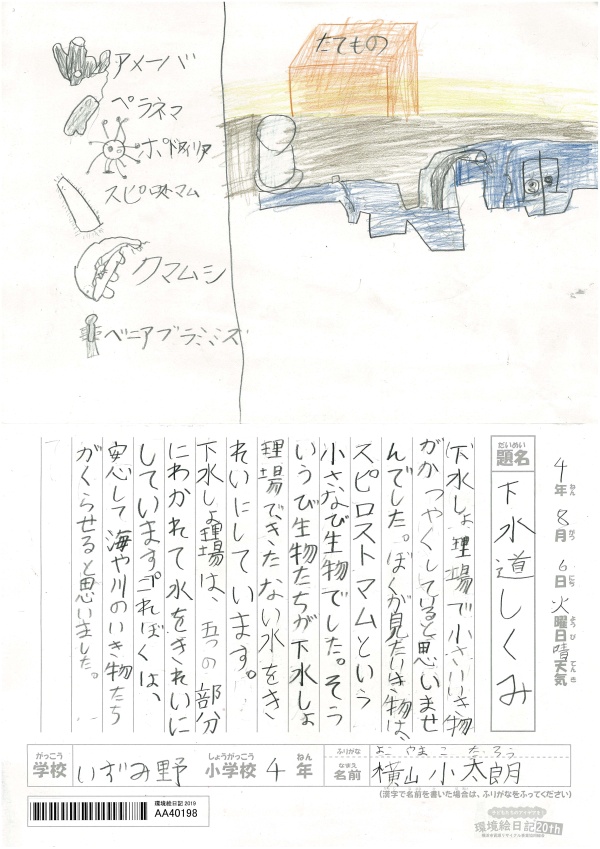 アメーバ
ペラネマ
ボドアィリア
スピロストマム
クマムシ
ベニアブラミミズ
たてもの
4年 8月 6日 火曜日 晴天気
ねん がつ にち ようび てんき
だいめい
題名
下水道しくみ
下水しょ理場で小さいいき物
がかつやくしていると思いませ
んでした。ぼくが見たいき物は、
スピロストマムという
小さなび生物でした。そう
いうび生物たちが下水しょ
理場できたない水をき
れいにしています。
下水しょ理場は、五つの部分
にわかれて水をきれいに
していますこればぼくは、
安心して海や川のいき物たち
がくらせると思いました。
がっこう しょうがっこう ねん
学校 いずみ野 小学校 4年
ふりがな よこやまこたろう
なまえ
名前 横山小太朗
(漢字で名前を書いた場合は、ふりがなをふってください)
環境絵日記 2019
AA40198
環境絵日記20th